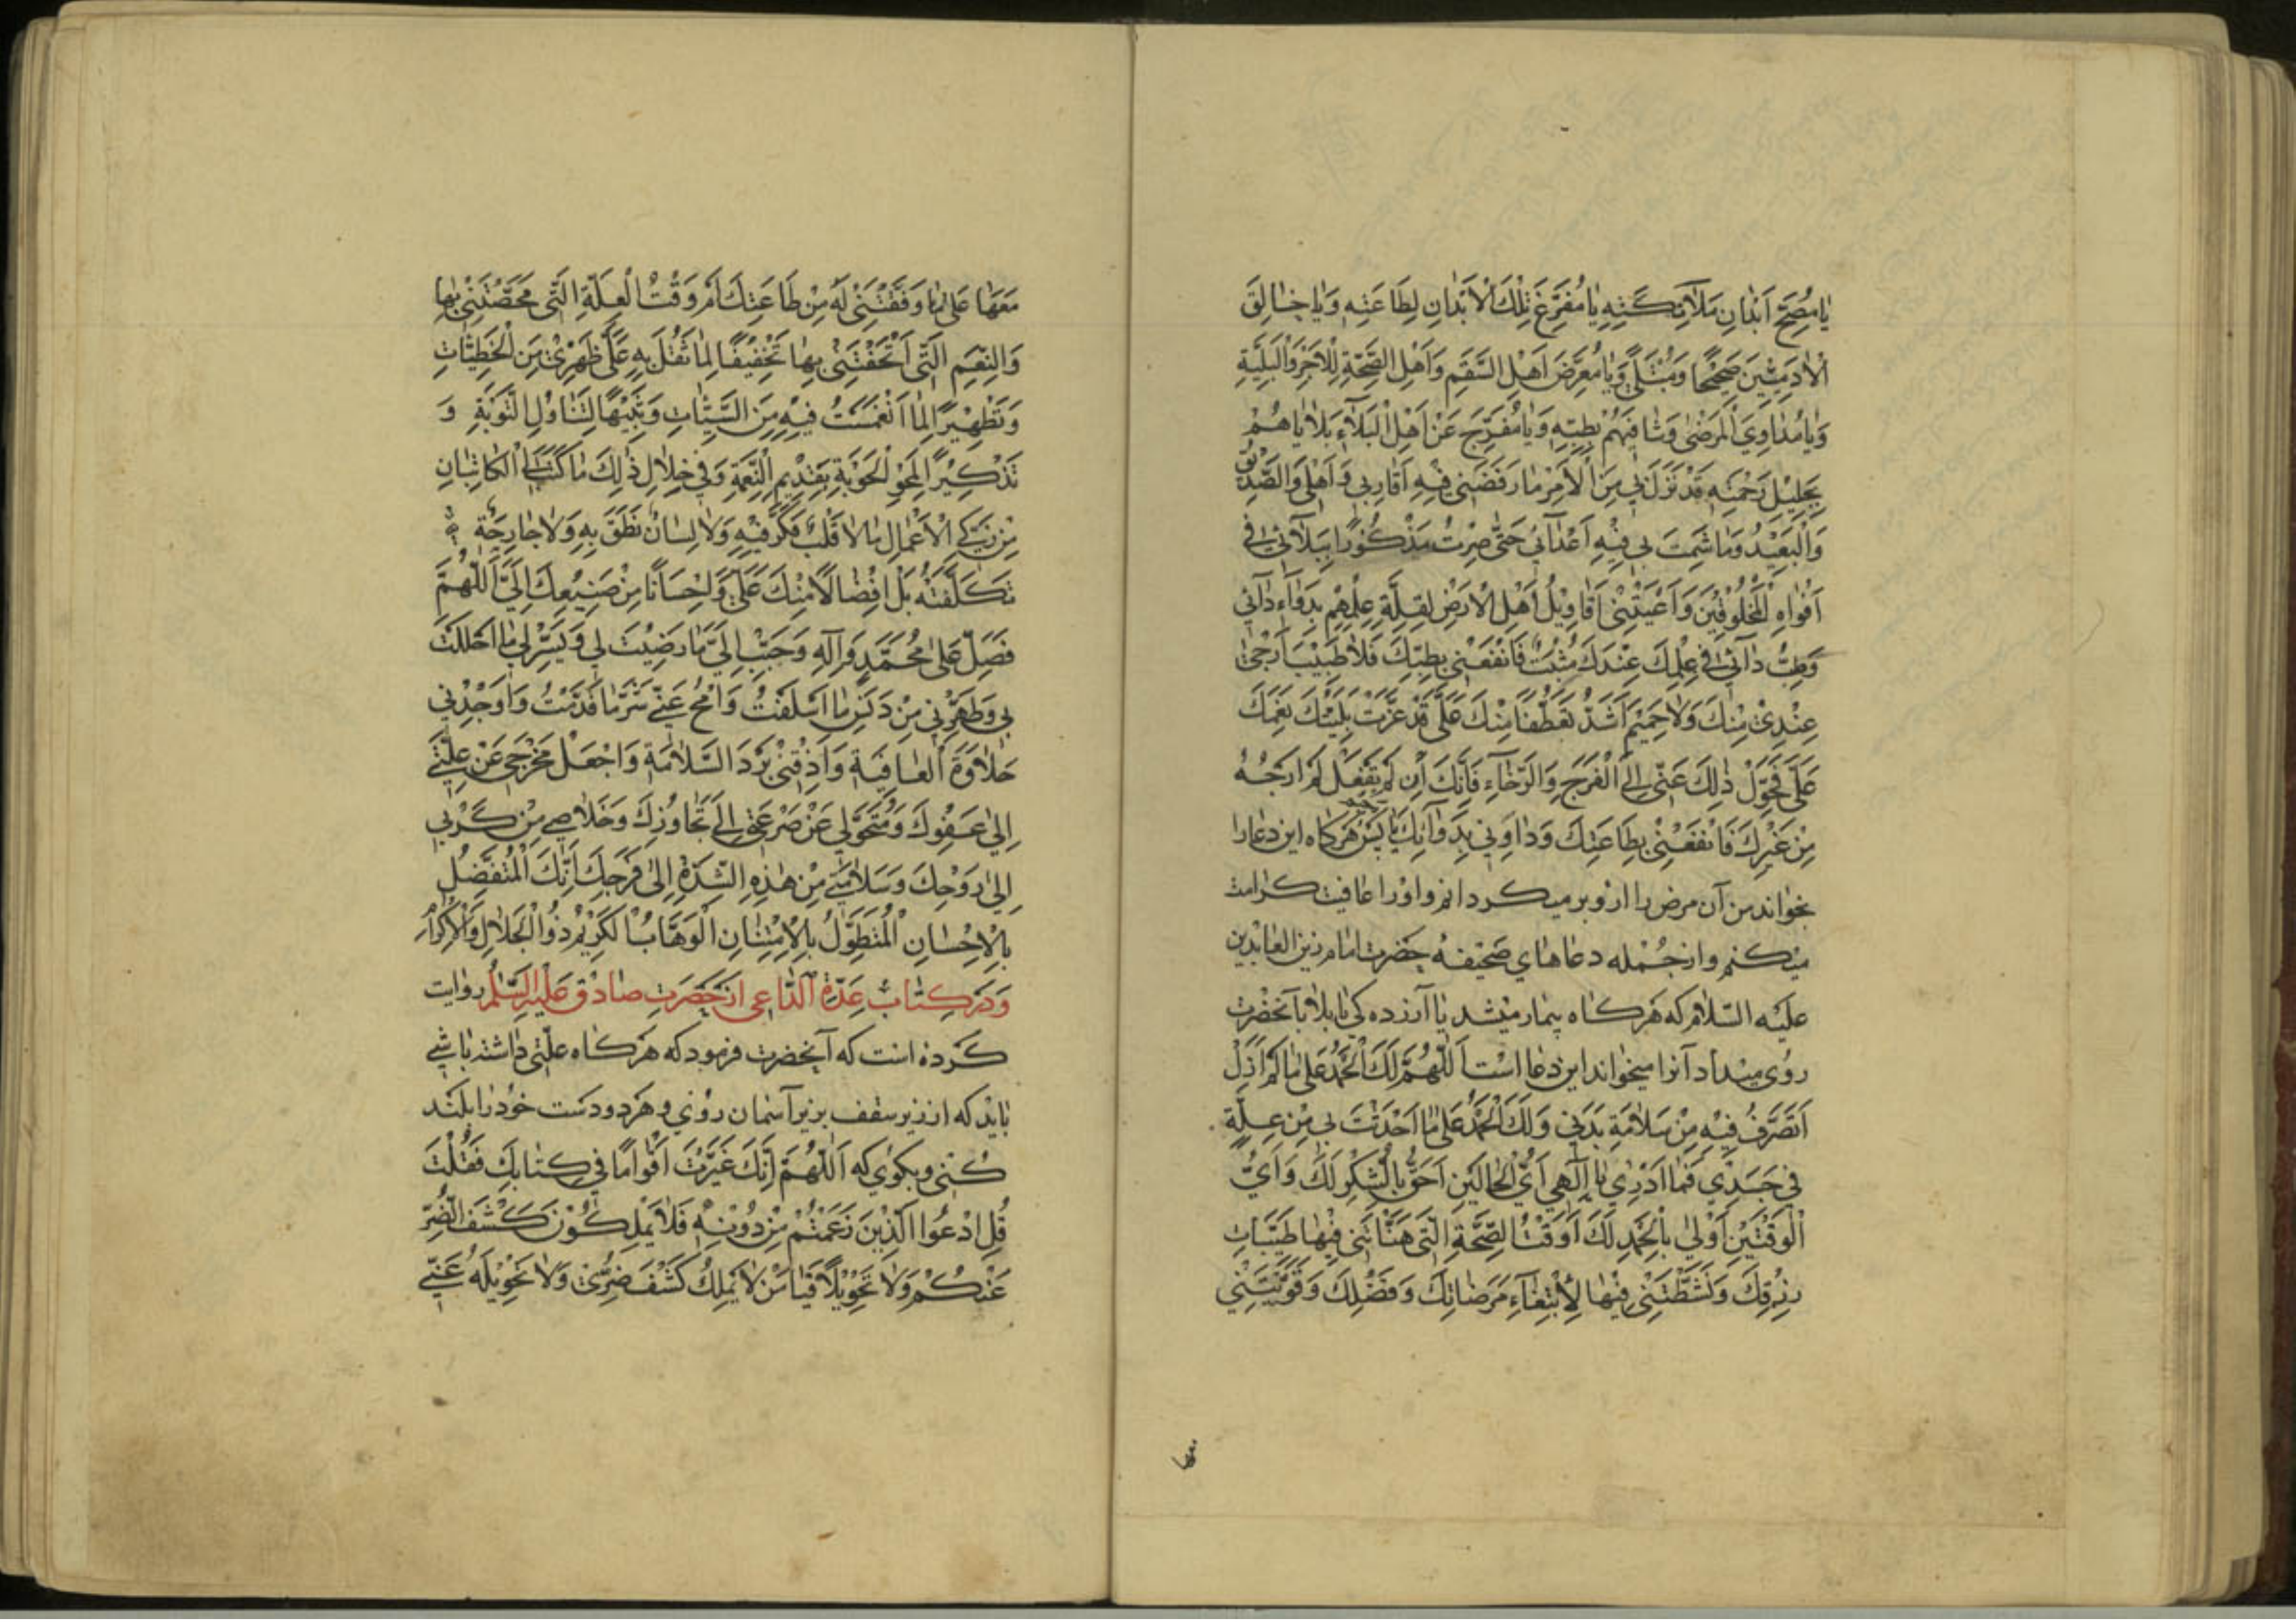 یا مُصِحَّ اَبْدانِ مَلآئِکَتِهِ یا مُفَرِّغَ تِلْكَ الْاَبْدانِ لِطَاعَتِهِ وَیا خالِقَ
الْادَمِیّینَ صَحیحًا وَمُبْتَلًی وَیا مُعَرِّضَ اَهْلِ السَّقَمِ وَاَهْلِ الصِّحَّةِ لِلْاَجْرِ وَالْبَلِیَّةِ
وَیا مُداوِیَ الْمَرْضیٰ وَشافِیَهُمْ بِطِبِّهِ وَیا مُفَرِّجَ عَنْ اَهْلِ الْبَلآءِ بَلایاهُمْ
بِجَلیلِ رَحْمَتِهِ قَدْ نَزَلَ بی مِنَ الْاَمْرِ ما رَفَضَنی فیهِ اَقارِبی وَاَهْلی وَالصَّدیقُ
وَالْبَعیدُ وَما شَمِتَ بی فیهِ اَعْدآئی حَتّی صِرْتُ مَذْکُورًا بِبَلآئی فی
اَفْواهِ الْمَخْلُوقینَ وَاَعْیَتْنی اَقاویلُ اَهْلِ الْاَرْضِ لِقِلَّةِ عِلْمِهِمْ بِدَوآءِ دآئی
وَطِبُّ دآئی فی عِلْمِكَ عِنْدَكَ مُثْبَتٌ فَانْفَعْنی بِطِبِّكَ فَلا طَبیبَ اَرْجیٰ
عِنْدی مِنْكَ وَلا حَمیمَ اَشَدُّ تَعَطُّفًا مِنْكَ عَلَیَّ قَدْ غَیَّرَتْ بَلِیَّتُكَ نِعَمَكَ
عَلَیَّ فَحَوِّلْ ذٰلِكَ عَنّی اِلَی الْفَرَجِ وَالرَّخآءِ فَاِنَّكَ اِنْ لَمْ تَفْعَلْ لَمْ اَرْجُهُ
مِنْ غَیْرِكَ فَانْفَعْنی بِطِاعَتِكَ وَداوِنی بِدَوآئِكَ یا پس هرکاه این دعارا
بخواند من آن مرض را ازو بر میکردانم واورا عافیت کرامت
میکنم وازجمله دعاهای صحیفه حضرت امام زین العابدین
علیه السّلام که هرکاه بیمار میشد یا آزرده کی یا بلا یا آنحضرت
روی میداد آنرا میخواند این دعا است اَللّهُمَّ لَكَ الْحَمْدُ عَلیٰ ما لَمْ اَزَلْ
اَتَصَرَّفُ فیهِ مِنْ سَلامَةِ بَدَنی وَلَكَ الْحَمْدُ عَلیٰ ما اَحْدَثْتَ بی مِنْ عِلَّةٍ
فی جَسَدی فَما اَدْری یا اِلٰهی اَیُّ الْحالَیْنِ اَحَقُّ بِالشُّکْرِ لَكَ وَاَیُّ
الْوَقْتَیْنِ اَوْلیٰ بِالْحَمْدِ لَكَ اَوَقْتُ الصِّحَّةِ الَّتی هَنَّاْتَنی فیها طَیِّباتِ
رِزْقِكَ وَنَشَّطْتَنی فیها لِاِبْتِغآءِ مَرْضاتِكَ وَفَضْلِكَ وَقَوَّیْتَنی
مَعَها عَلیٰ ما وَفَّقْتَنی لَهُ مِنْ طَاعَتِكَ اَمْ وَقْتُ الْعِلَّةِ الَّتی مَحَّصْتَنی بِها
وَالنِّعَمِ الَّتی اَتْحَفْتَنی بِها تَخْفیفًا لِما ثَقُلَ بِهِ عَلَیَّ ظَهْری مِنَ الْخَطیئاتِ
وَتَطْهیرًا لِمَا انْغَمَسْتُ فیهِ مِنَ السَّیِّئاتِ وَتَنْبیهًا لِتَناوُلِ التَّوْبَةِ وَ
تَذْکیرًا لِمَحْوِ الْحَوْبَةِ بِقَدیمِ النِّعْمَةِ وَفی خِلالِ ذٰلِكَ ما کَتَبَ لِیَ الْکاتِبانِ
مِنْ زَکِیِّ الْاَعْمالِ ما لا قَلْبٌ فَکَّرَ فیهِ وَلا لِسانٌ نَطَقَ بِهِ وَلا جارِحَةٌ
تَکَلَّفَتْهُ بَلْ اِفْضالًا مِنْكَ عَلَیَّ وَاِحْسانًا مِنْ صَنیعِكَ اِلَیَّ اَللّهُمَّ
فَصَلِّ عَلیٰ مُحَمَّدٍ وَآلِهِ وَحَبِّبْ اِلَیَّ ما رَضیتَ لی وَیَسِّرْ لی ما اَحْلَلْتَ
بی وَطَهِّرْنی مِنْ دَنَسِ ما اَسْلَفْتُ وَامْحُ عَنّی شَرَّ ما قَدَّمْتُ وَاَوْجِدْنی
حَلاوَةَ الْعافِیَةِ وَاَذِقْنی بَرْدَ السَّلامَةِ وَاجْعَلْ مَخْرَجی عَنْ عِلَّتی
اِلیٰ عَفْوِكَ وَمُتَحَوَّلی عَنْ صَرْعَتی اِلیٰ تَجاوُزِكَ وَخَلاصی مِنْ کَرْبی
اِلیٰ رَوْحِكَ وَسَلامَتی مِنْ هٰذِهِ الشِّدَّةِ اِلیٰ فَرَجِكَ اِنَّكَ الْمُتَفَضِّلُ
بِالْاِحْسانِ الْمُتَطَوِّلُ بِالْاِمْتِنانِ الْوَهّابُ الْکَریمُ ذُو الْجَلالِ وَالْاِکْرامِ
وَدر کِتابِ عدّة الدّاعی از حَضرتِ صادق عَلَیْهِ السَّلٰم روایت
کرده است که آنحضرت فرمود که هرکاه علّتی داشته باشی
باید که از زیر سقف بزیر آسمان روی و هر دو دست خود را بلند
کنی و بکوی که اَللّهُمَّ اِنَّكَ عَیَّرْتَ اَقْوامًا فی کِتابِكَ فَقُلْتَ
قُلِ ادْعُوا الَّذینَ زَعَمْتُمْ مِنْ دُونِهِ فَلا یَمْلِکُونَ کَشْفَ الضُّرِّ
عَنْکُمْ وَلا تَحْویلًا فَیا مَنْ لا یَمْلِكُ کَشْفَ ضُرّی وَلا تَحْویلَهُ عَنّی